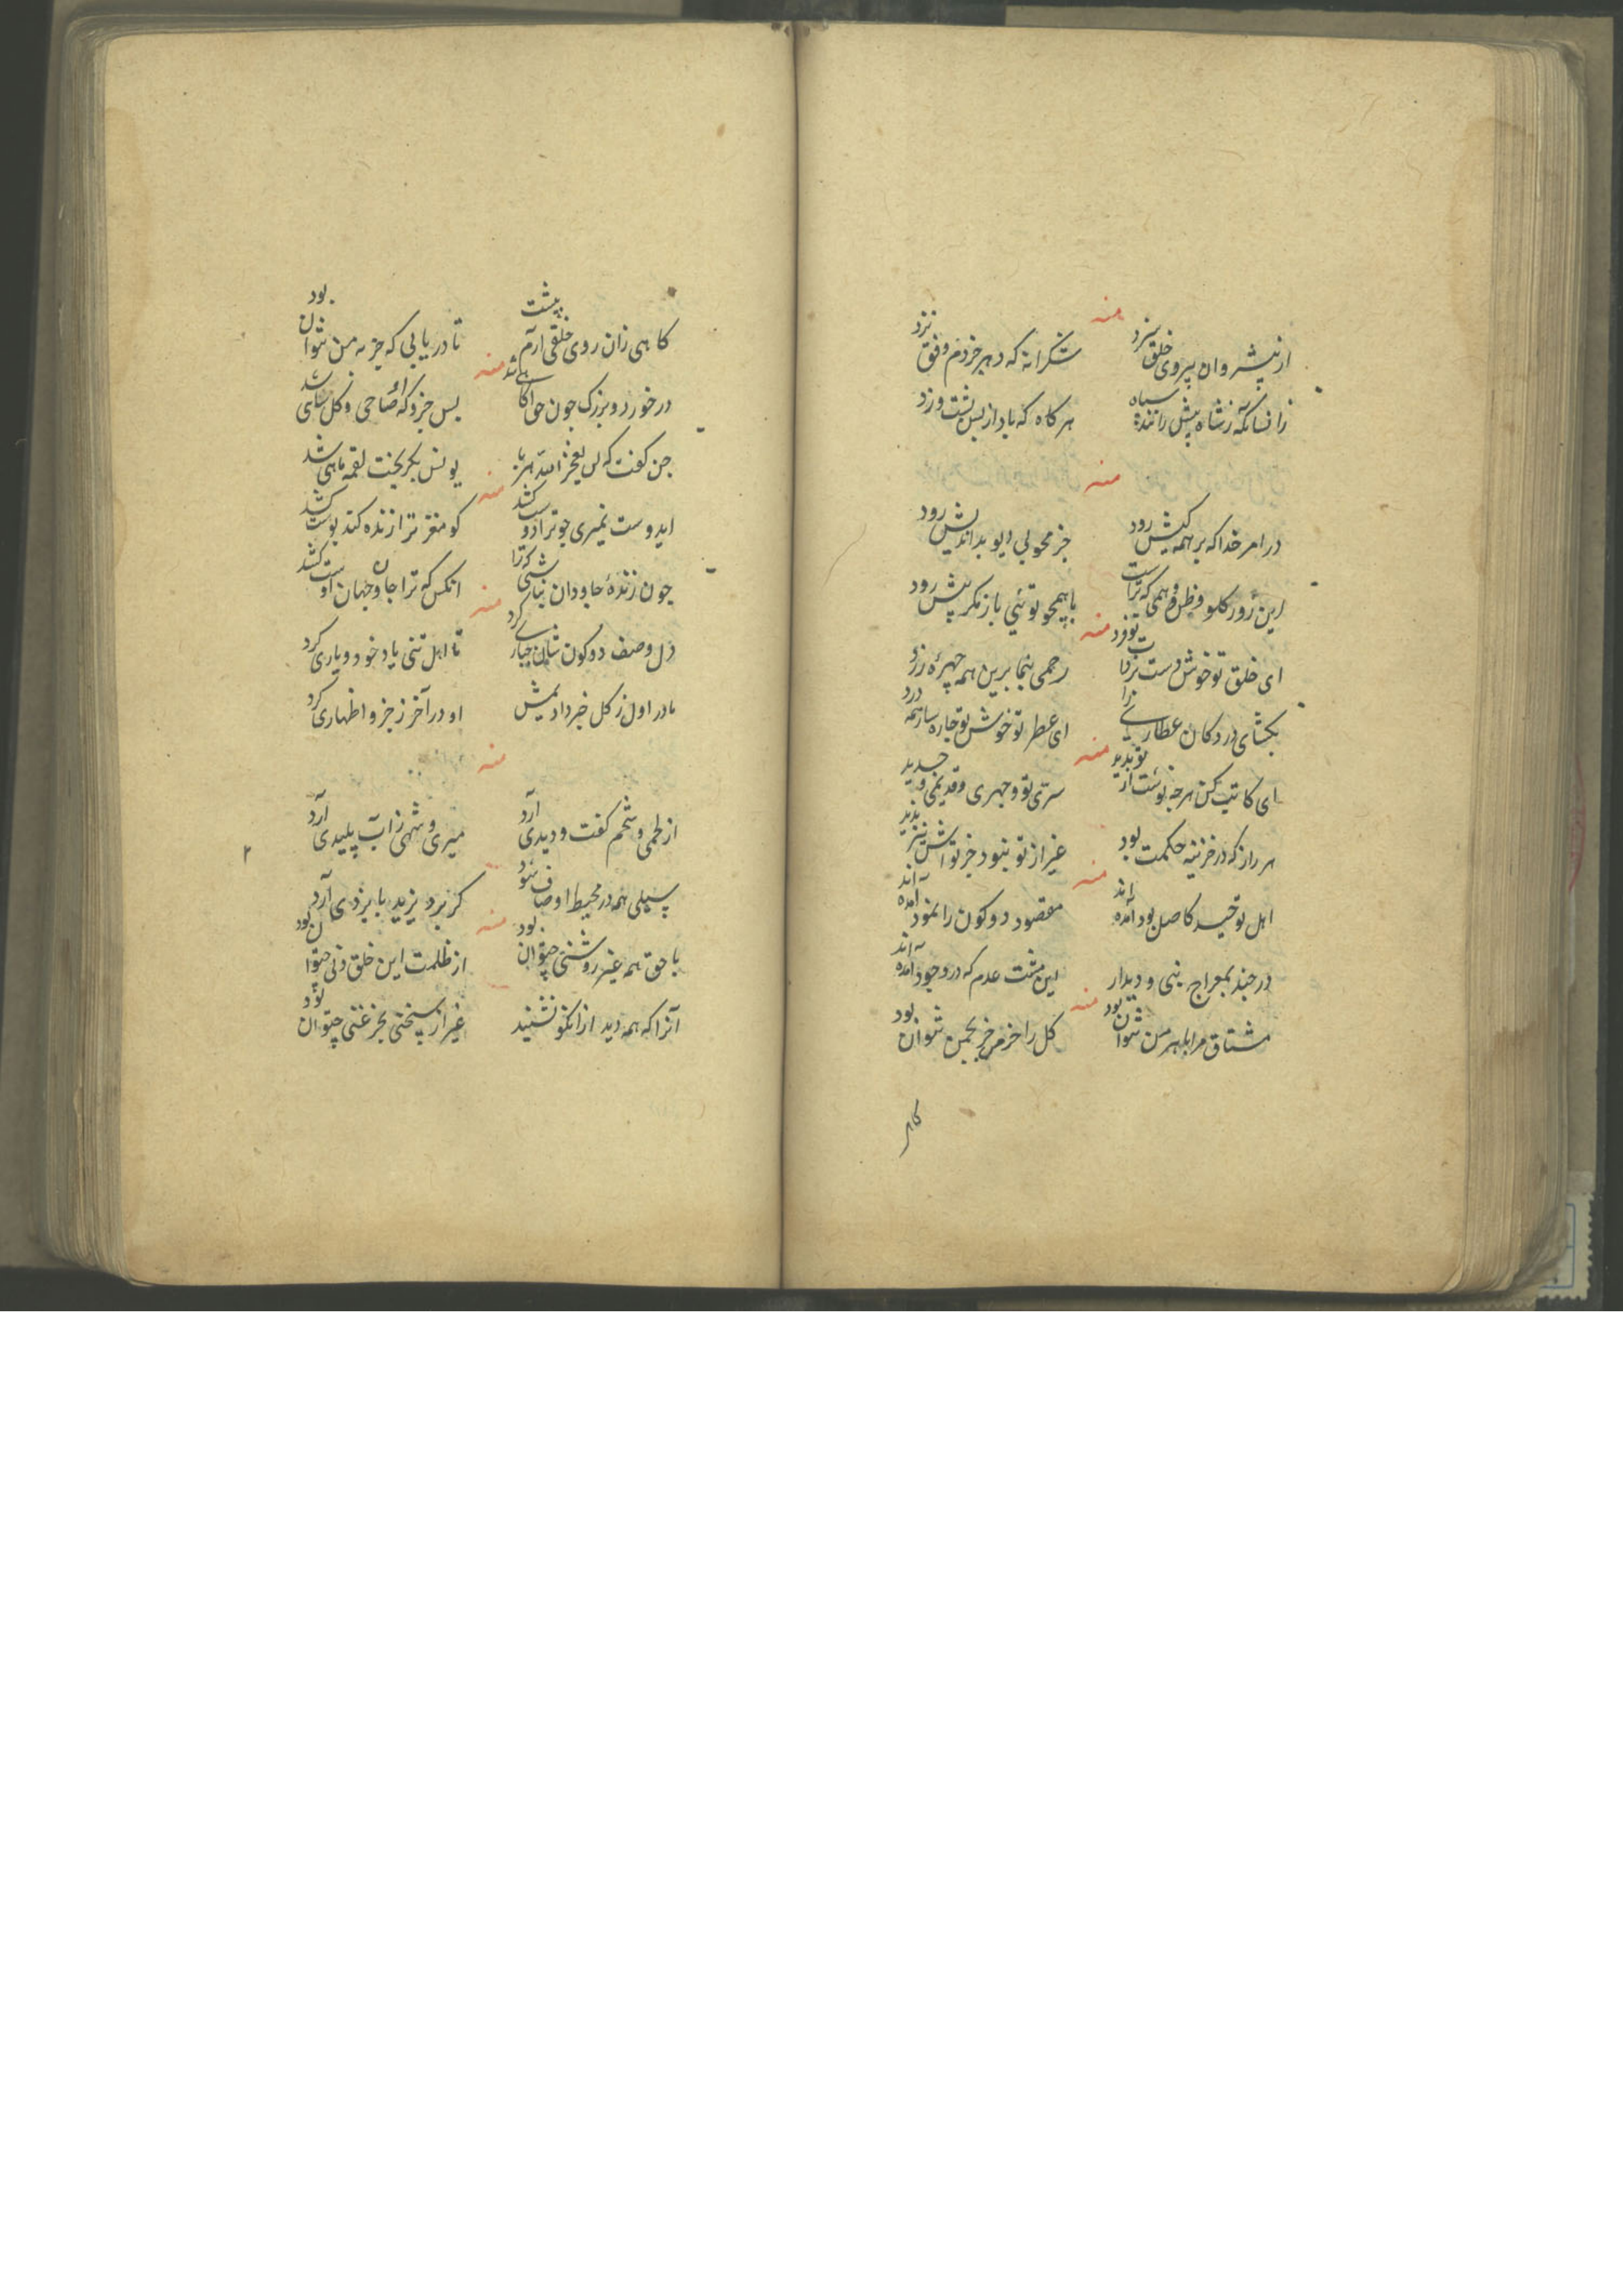 منه
از پیشروان پیروی خلق سزد
شکرانه که دهر خردم وفق نزد
زانسانکه زشاه پیش رانند سپاه
هر کاه که باد از پس پشت وزد
منه
در امر خدا که بر همه کیش رود
جز محو لی دیو بداندیش رود
این زور کلو و ظل وهمی که تراست
با همچو توئی باز مکر پیش رود
منه
ای خلق تو خوش دست
رحمی بنما برین همه چهره زرد
بکشای در دکان عطاری را
ای عطر تو خوش تو چاره ساز همه درد
منه
ای کاتب کن هر چه نوشت از تو بدید
سری تو و جهری و قدیمی و جدید
هر راز که در خزینه حکمت بود
غیر از تو نبود جز تواش نیز ندید
منه
اهل توحید کاصل بود آمده اند
مقصود دو کون را نمود آمده اند
در چند بمعراج نبی و دیدار
این مشت عدم که در وجود آمده اند
منه
مشتاق مرا بهر من نتوان بود
کل را جز من نتوان بود
کاهی
کاهی زان روی خلقی آرم پیشت
تا دریابی که جز به من نتوان بود
منه
در خورد و بزرک چون حق آکاهی شد
پس جزو که او ضاحی و کل شد
جن کفت که لن یعجز الله هربا
یونس بکریخت لقمه ماهی شد
منه
ایدوست نمیری چو ترا دوست کشد
کو مغز ترا زنده کند پوست کشد
چون زنده جاودان نباشی که ترا
آنکس که ترا جان و جهان اوست کشد
منه
دل وصف دو کون کرد
تا اهل تنی یاد خود و یاری کرد
مادر اول ز کل خبر دادیمش
او در آخر ز جزو اظهاری کرد
منه
از لحمی و شحم کفت و دیدی آرد
میری و شهی ز آب پلیدی آرد
سیلی همه در محیط اوصاف شود
کر برد یزید بایزیدی آرد
منه
با حق همه غیر روشنی چتوان بود
از ظلمت این خلق دنی چتوان بود
آنرا که همه دید از آنکو نشنید
غیر از سخنی بجز غنی چتوان بود